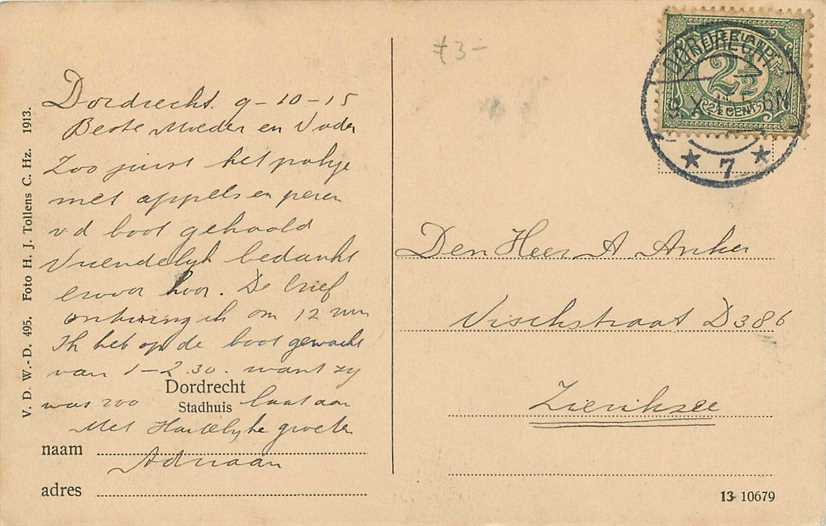 Dordrecht 9-10-15
Beste Moeder en Vader
Zoo juist het pakje
met appels en peren
v d boot gehaald
Vriendelijk bedankt
ervoor hoor. De brief
ontving ik om 12 uur
Ik heb op de boot gewacht
van 1-2.30. want zij
was zoo laat aan
Met Hartelijke groeten
Adriaan
Dordrecht
Stadhuis
naam
adres
V. D. W.-D. 495. Foto H. J. Tollens C. Hz. 1913.
f3-
DORDRECHT
2½
2½ CENT
★ 7 ★
Den Heer A Anker
Vischstraat D386
Zierikzee
13 10679